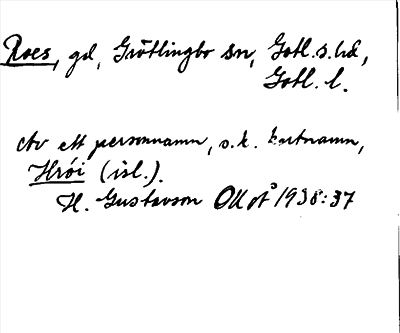 Roes, gd, Grötlingbo sn, Gotl. s. hd,
Gotl. l.
Av ett personnamn, s.k. kortnamn,
Hrói (isl.).
H. Gustavson OUÅ 1938:37